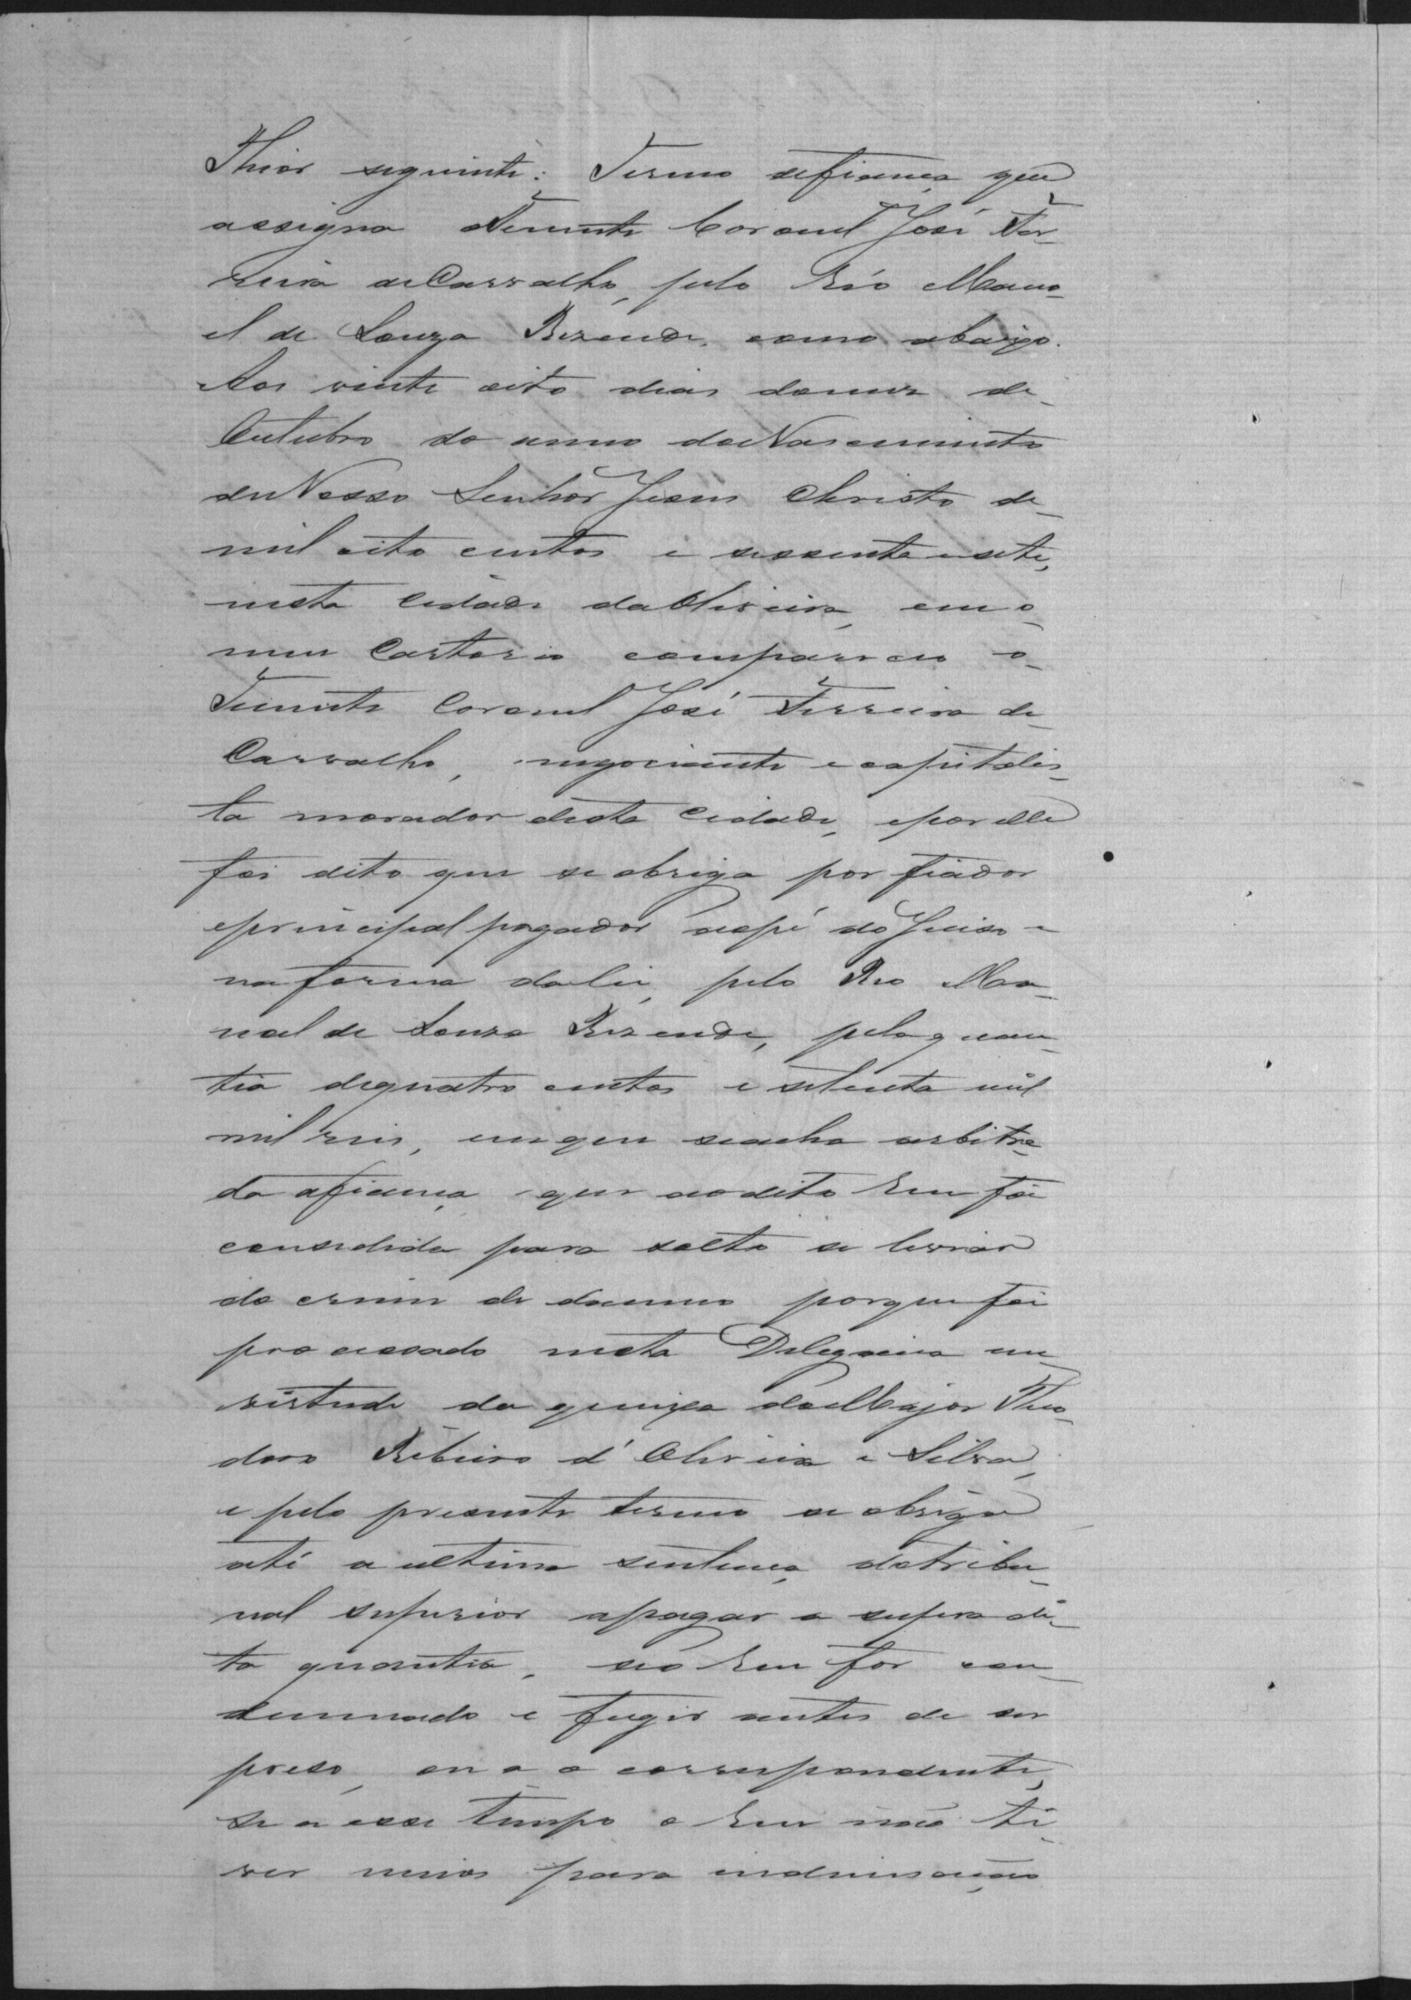 Thior seguinte: Termo defiança que
assigna o Tenente Coronel José Fer-
reira de Carvalho, pelo Réo Mano-
el de Souza Rezende, como abaixo.
Aos vinte oito dias do mez de
Outubro do anno do Nascimento
de Nosso Senhor Jesus Christo de
mil oito centos e sessenta e sete,
nesta Cidade da Oliveira, em o
meu Cartorio compareceo o
Tenente Coronel José Ferreira de
Carvalho, negociante e capitalis-
ta morador desta Cidade, e por elle
foi dito que se obriga por fiador
e principal pagador ao pé do Juiso e
na forma da lei, pelo Reo Ma-
noel de Souza Rezende, pela quan-
tia de quatro centos e setenta mil
mil reis, em que se acha arbitra-
da a fiança que ao dito Reu foi
consedida para solto se livrar
do crime de damno porque foi
processado nesta Delegacia em
virtude da queixa do Major Theo-
doro Ribeiro d'Oliveira e Silva,
e pelo presente termo se obriga
até a ultima sentença do tribu-
nal superior a pagar a supra di-
ta quantia, se o Reu for con-
demnado e fugir antes de ser
preso, ou a correspondente,
se a esse tempo o Reu não ti-
ver meios para indemnisação